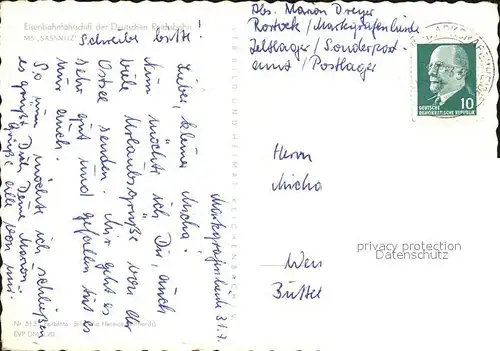 Eisenbahnfährschiff der Deutschen Reichsbahn
MS „SASSNITZ"
Schreibe bitte!
Markgrafenheide 31.7.
Lieber, kleiner Micha!
Nun möchte ich Dir, auch
viele Urlaubsgrüße von der
Ostsee senden. Mir geht es
sehr gut und gefallen tut es
mir auch.
So nun möchte ich schließen
es grüßt Dich Deine Manon.
Grüße alle von mir
Abs. Manon Dreyer
Rostock/Markgrafenheide
Zeltlager/Sonderpost-
amt/Postlager
10
DEUTSCHE
DEMOKRATISCHE REPUBLIK
Herrn
Micha
Büttel
VERLAG BILD UND HEIMAT REICHENBACH I. V.
privacy protection
Datenschutz